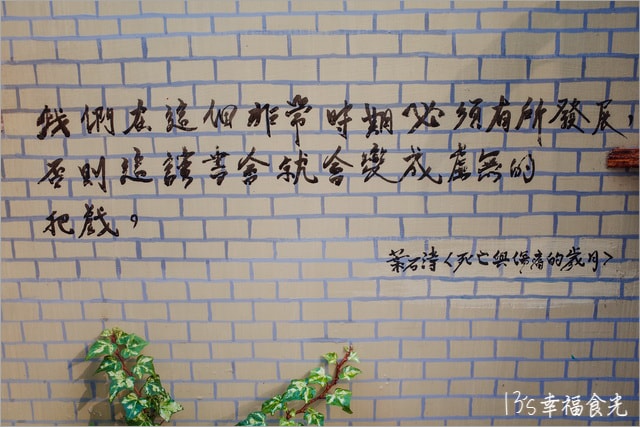 我們在這個非常時期必須有所發展，
否則這讀書會就會變成虛無的
把戲，
葉石濤〈死亡與傷痛的歲月〉
13's幸福食光